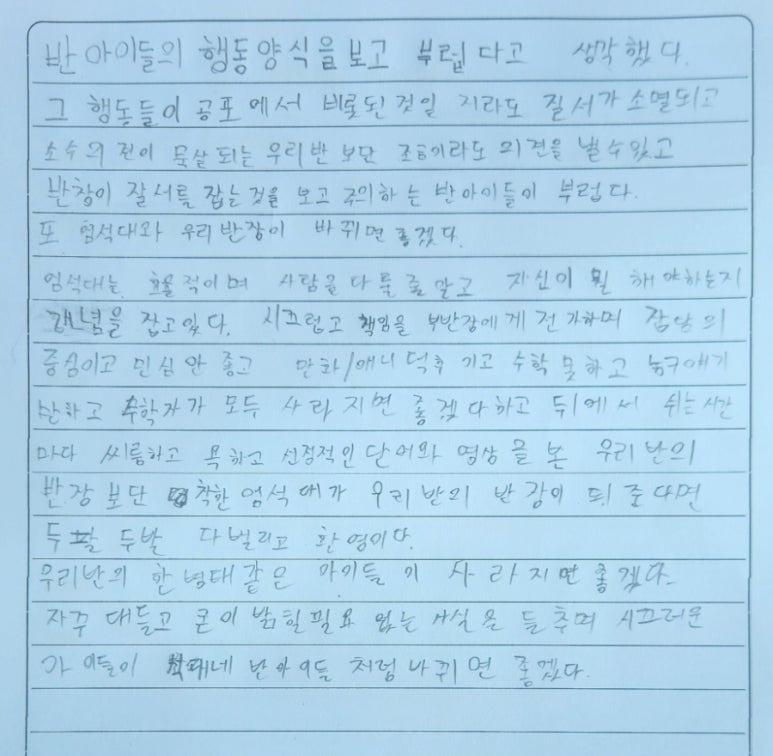 반 아이들의 행동양식을 보고 부럽다고 생각했다.
그 행동들이 공포에서 비롯된 것일 지라도 질서가 소멸되고
소수의 전이 묵살 되는 우리반 보단 조금이라도 의견을 낼 수 있고
반장이 질서를 잡는 것을 보고 주의하는 반 아이들이 부럽다.
또 엄석대와 우리 반장이 바뀌면 좋겠다.
엄석대는 효율적이며 사람을 다룰 줄 알고 자신이 뭘 해야하는지
개념을 잡고 있다. 시끄럽고 책임을 부반장에게 전가하며 잡담의
중심이고 민심 안 좋고 만화/애니 덕후 기고 수학 못하고 농구얘기
만하고 수학자가 모두 사라지면 좋겠다하고 뒤에서 쉬는 시간
마다 씨름하고 욕하고 선정적인 단어와 영상을 본 우리 반의
반장 보단 착한 엄석대가 우리반의 반장이 되준다면
두 팔 두발 다 벌리고 환영이다.
우리반의 한병태 같은 아이들이 사라지면 좋겠다.
자주 대들고 굳이 밝힐필요 없는 사실을 들추며 시끄러운
아이들이 석대네 반 아이들 처럼 바뀌면 좋겠다.